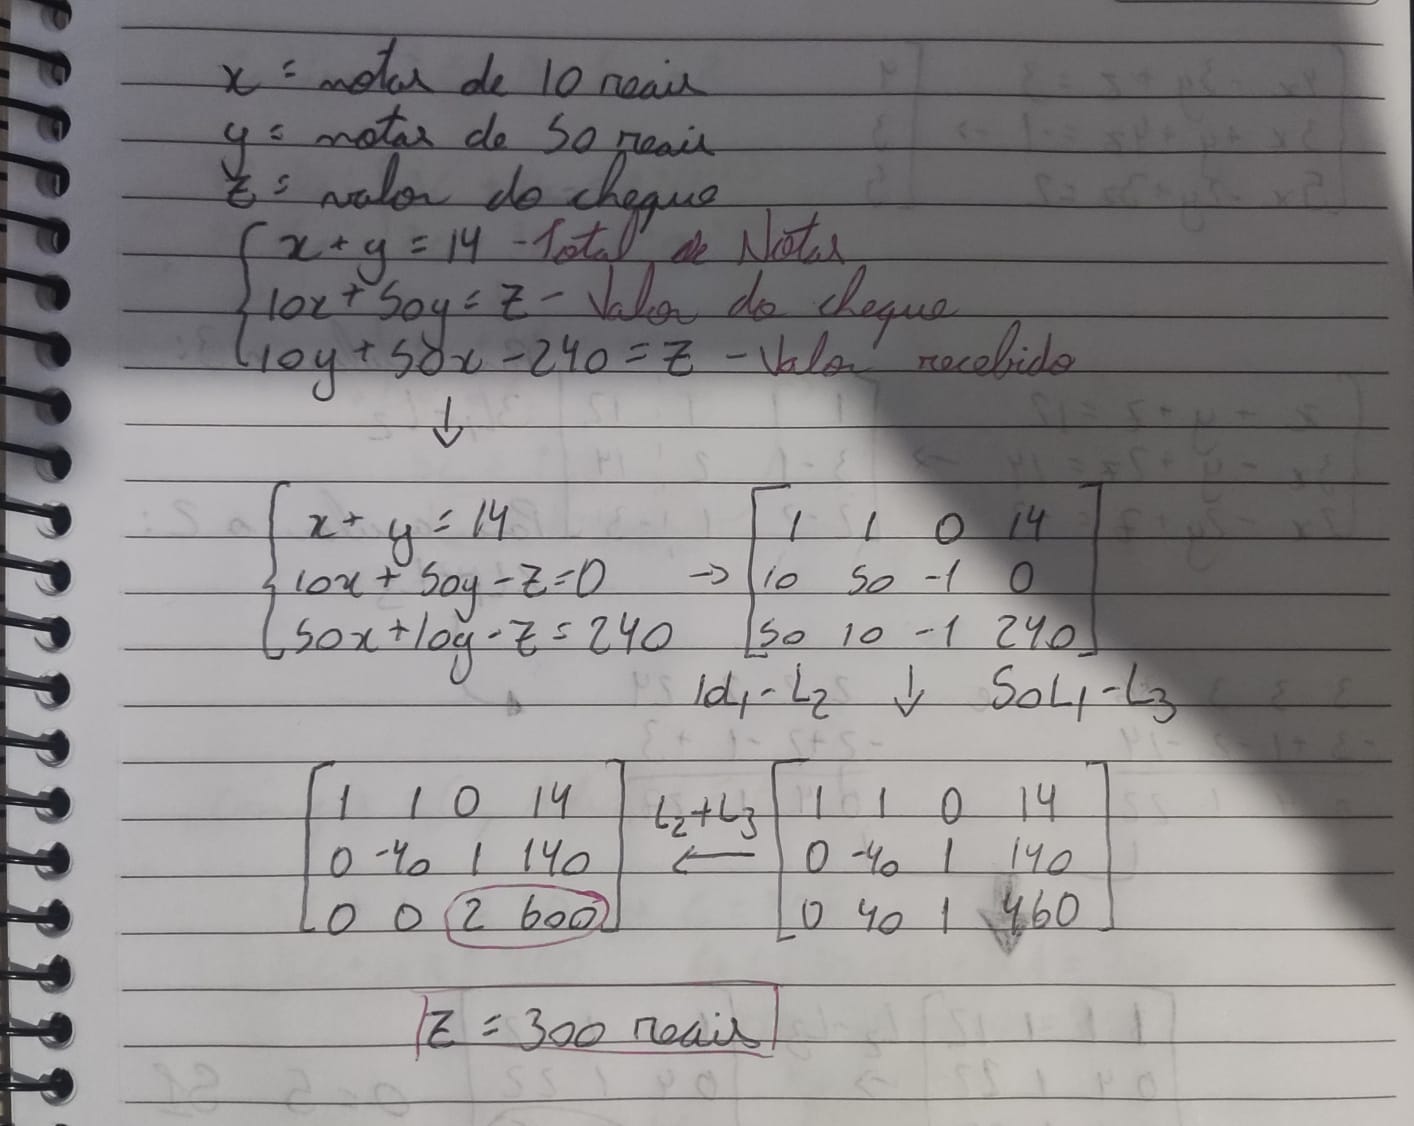 x = notas de 10 reais
y = notas de 50 reais
z = valor do cheque
x + y = 14 - Total de Notas
10x + 50y = z - Valor do cheque
10y + 50x - 240 = z - Valor recebido
↓
x + y = 14
10x + 50y - z = 0
50x + 10y - z = 240
→
1 1 0 14
10 50 -1 0
50 10 -1 240
10L1 - L2 ↓ 50L1 - L3
1 1 0 14
0 -40 1 140
0 40 1 460
L2 + L3
←
1 1 0 14
0 -40 1 140
0 0 2 600
z = 300 reais